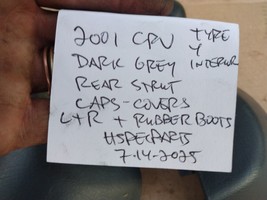 2001 CRV TYPE
4
DARK GREY INTERIOR
REAR STRUT
CAPS-COVERS
L+R + RUBBER BOOTS
HSPECPARTS
7-14-2025